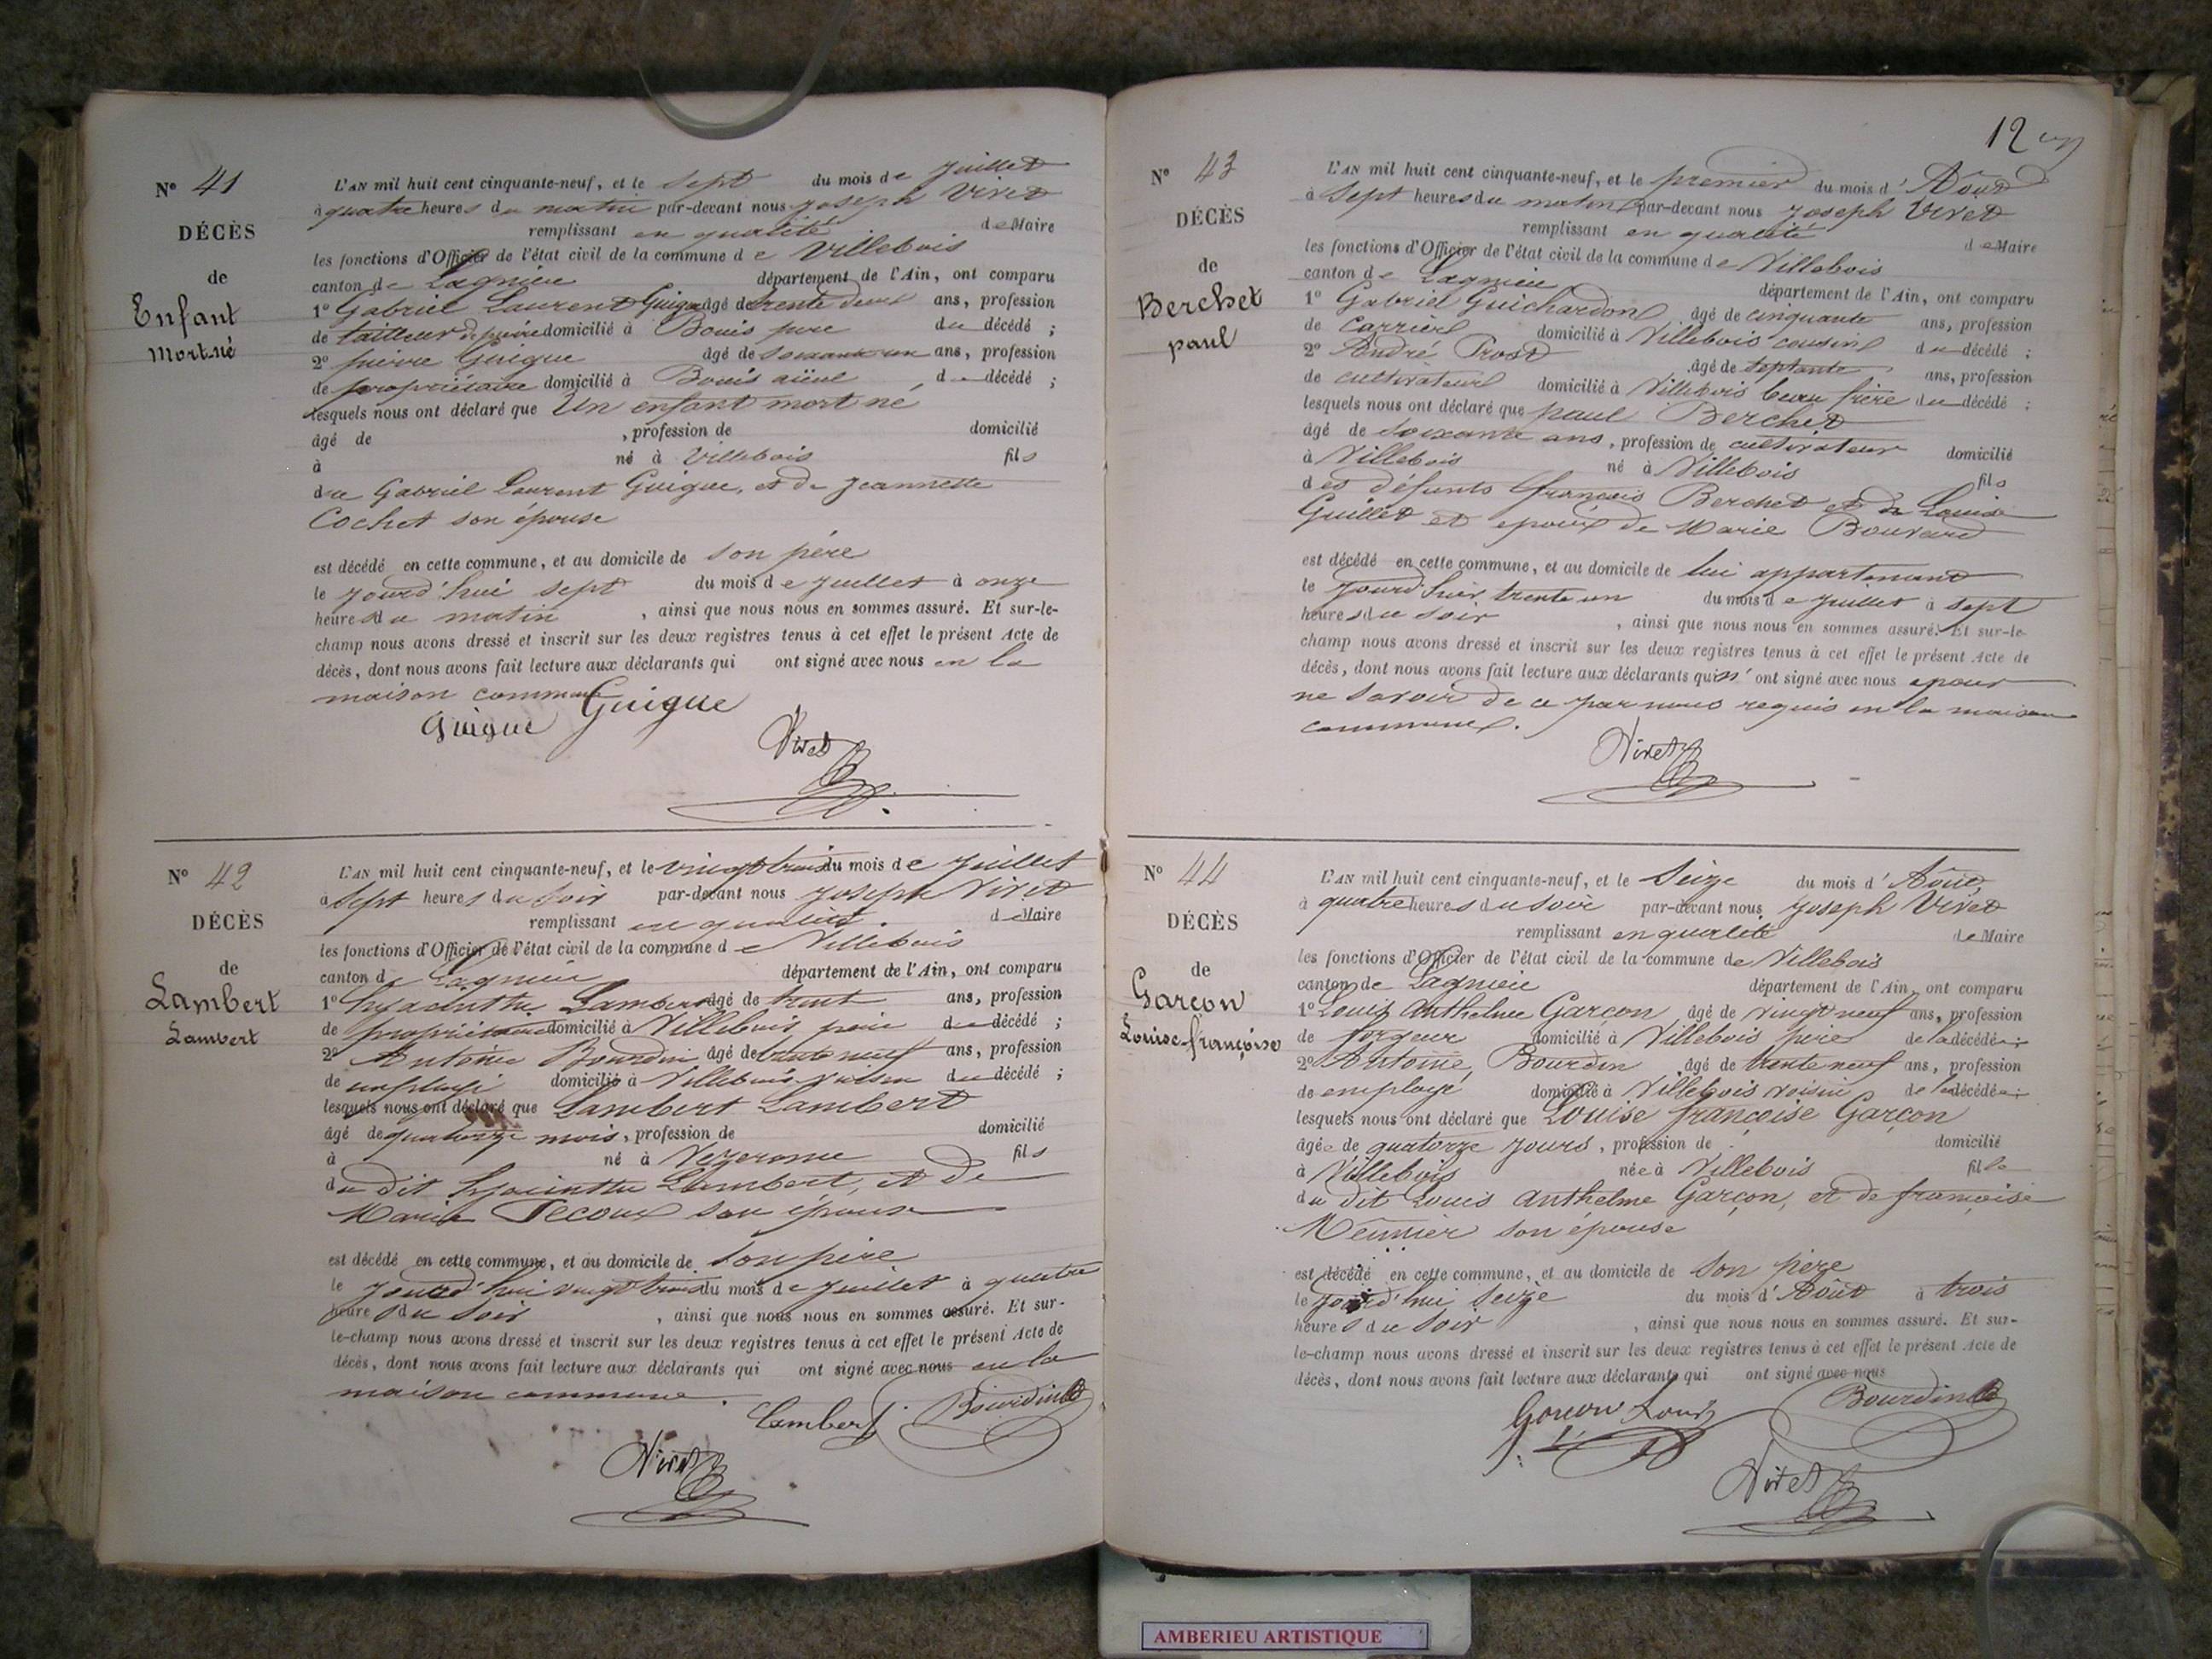 N° 41
DÉCÈS
de
Enfant
mort né
L'AN mil huit cent cinquante-neuf, et le sept du mois de juillet
à quatre heures du matin par-devant nous joseph Viret
remplissant en qualité de Maire
les fonctions d'Officier de l'état civil de la commune de Villebois
canton de Lagnieu département de l'Ain, ont comparu
1° Gabriel Laurent Guigue âgé de trente deux ans, profession
de tailleur de pierre domicilié à Bouis pere du décédé ;
2° pierre Guigue âgé de soixante un ans, profession
de propriétaire domicilié à Bouis aïeul , du décédé ;
lesquels nous ont déclaré que Un enfant mort né
âgé de , profession de domicilié
à né à Villebois fils
du Gabriel Laurent Guigue, et de jeannette
Cochet son épouse
est décédé en cette commune, et au domicile de son père
le jourd'hui sept du mois de juillet à onze
heures du matin , ainsi que nous nous en sommes assuré. Et sur-le-
champ nous avons dressé et inscrit sur les deux registres tenus à cet effet le présent Acte de
décès, dont nous avons fait lecture aux déclarants qui ont signé avec nous en la
maison commune
Guigue Guigue
Viret
N° 42
DÉCÈS
de
Lambert
Lambert
L'AN mil huit cent cinquante-neuf, et le vingt trois du mois de juillet
à sept heures du soir par-devant nous joseph Viret
remplissant en qualité de Maire
les fonctions d'Officier de l'état civil de la commune de Villebois
canton de Lagnieu département de l'Ain, ont comparu
1° hyacinthe Lambert âgé de trent ans, profession
de propriétaire domicilié à Villebois père du décédé ;
2° Antoine Bourdin âgé de trente neuf ans, profession
de employé domicilié à Villebois voisin du décédé ;
lesquels nous ont déclaré que Lambert Lambert
âgé de quatorze mois, profession de domicilié
à né à Vezeronce fils
du dit hyacinthe Lambert, et de
Marie son épouse
est décédé en cette commune, et au domicile de son père
le jourd'hui vingt trois du mois de juillet à quatre
heures du soir , ainsi que nous nous en sommes assuré. Et sur-
le-champ nous avons dressé et inscrit sur les deux registres tenus à cet effet le présent Acte de
décès, dont nous avons fait lecture aux déclarants qui ont signé avec nous en la
maison commune.
Lambert Bourdin
Viret
12
N° 43
DÉCÈS
de
Berchet
paul
L'AN mil huit cent cinquante-neuf, et le premier du mois d'Aôut
à sept heures du matin par-devant nous joseph Viret
remplissant en qualité de Maire
les fonctions d'Officier de l'état civil de la commune de Villebois
canton de Lagnieu département de l'Ain, ont comparu
1° Gabriel Guichardon âgé de cinquante ans, profession
de carrier domicilié à Villebois cousin du décédé ;
2° André Prost âgé de septante ans, profession
de cultivateur domicilié à Villebois beau frère du décédé ;
lesquels nous ont déclaré que paul Berchet
âgé de soixante ans, profession de cultivateur domicilié
à Villebois né à Villebois fils
des défunts françois Berchet et de Louise
Guillet et époux de Marie Bouvard
est décédé en cette commune, et au domicile de lui appartenant
le jourd'hier trente un du mois de juillet à sept
heures du soir , ainsi que nous nous en sommes assuré. Et sur-le-
champ nous avons dressé et inscrit sur les deux registres tenus à cet effet le présent Acte de
décès, dont nous avons fait lecture aux déclarants qui n'ont signé avec nous pour
ne savoir de ce par nous requis en la maison
commune.
Viret
N° 44
DÉCÈS
de
Garçon
Louise-françoise
L'AN mil huit cent cinquante-neuf, et le Seize du mois d'Aôut
à quatre heures du soir par-devant nous joseph Viret
remplissant en qualité de Maire
les fonctions d'Officier de l'état civil de la commune de Villebois
canton de Lagnieu département de l'Ain, ont comparu
1° Louis Anthelme Garçon âgé de vingt neuf ans, profession
de forgeur domicilié à Villebois père de la décédée ;
2° Antoine Bourdin âgé de trente neuf ans, profession
de employé domicilié à Villebois voisin de la décédée ;
lesquels nous ont déclaré que Louise françoise Garçon
âgée de quatorze jours, profession de domicilié
à Villebois née à Villebois fille
du dit Louis Anthelme Garçon, et de françoise
Meunier son épouse
est décédé en cette commune, et au domicile de son père
le jourd'hui seize du mois d'Aôut à trois
heures du soir , ainsi que nous nous en sommes assuré. Et sur-
le-champ nous avons dressé et inscrit sur les deux registres tenus à cet effet le présent Acte de
décès, dont nous avons fait lecture aux déclarants qui ont signé avec nous
Garçon Louis Bourdin
Viret
AMBERIEU ARTISTIQUE